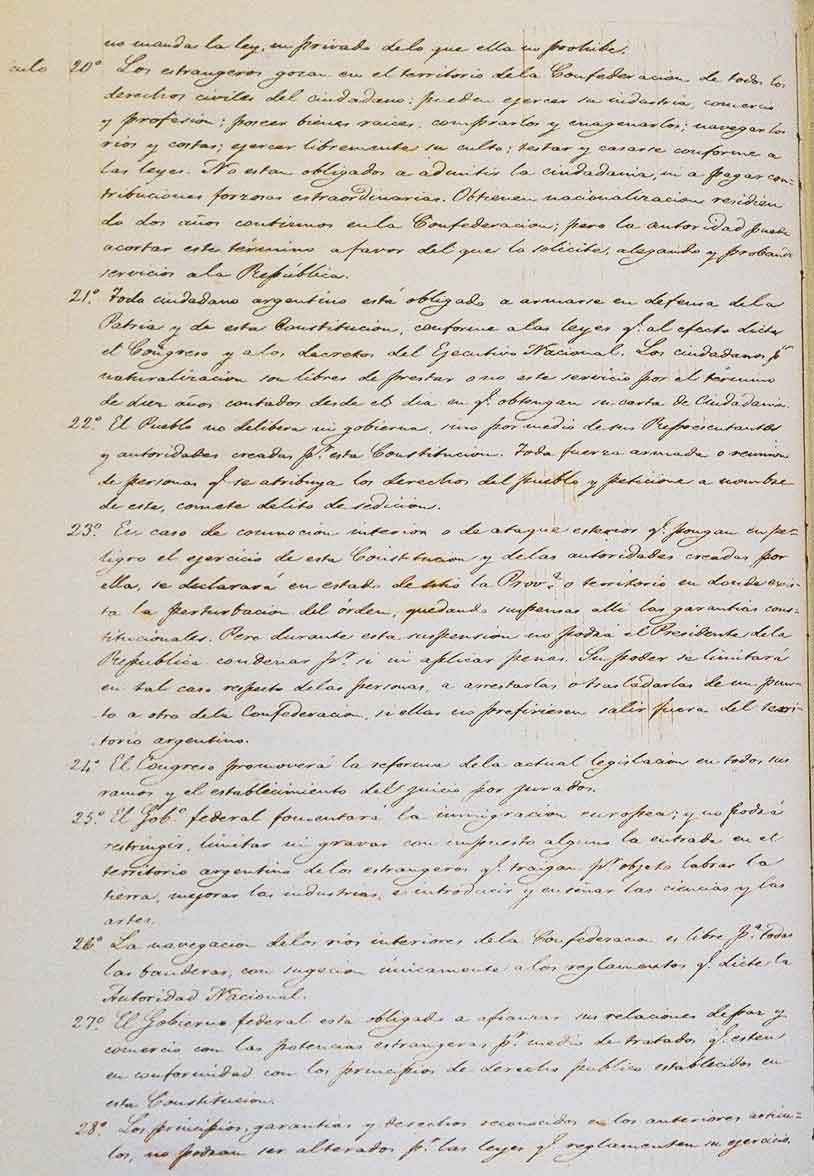 no manda la ley, ni privado de lo que ella no prohibe.
culo 20º Los estrangeros gozan en el territorio dela Confederacion de todos los
derechos civiles del ciudadano; pueden ejercer su industria, comercio
y profesion; poseer bienes raices, comprarlos y enagenarlos; navegar los
rios y costas; ejercer libremente su culto; testar y casarse conforme a
las leyes. No estan obligados a admitir la ciudadania, ni a pagar con=
tribuciones forzosas estraordinarias. Obtienen nacionalizacion residien
do dos años continuos en la Confederacion; pero la autoridad puede
acortar este término a favor del que lo solicite, alegando y probando
servicios a la República.
21º Todo ciudadano argentino está obligado a armarse en defensa dela
Patria y de esta Constitucion, conforme a las leyes q.e al efecto dicte
el Congreso y a los decretos del Ejecutivo Nacional. Los ciudadanos p.r
naturalizacion son libres de prestar o no este servicio por el término
de diez años contados desde el dia en q.e obtengan su carta de Ciudadania.
22º El Pueblo no delibera ni gobierna, sino por medio de sus Representantes
y autoridades creadas p.r esta Constitucion. Toda fuerza armada o reunion
de personas q.e se atribuya los derechos del pueblo y peticione a nombre
de este, comete delito de sedicion.
23º En caso de conmocion interior o de ataque esterior q.e pongan en pe-
ligro el ejercicio de esta Constitucion y delas autoridades creadas por
ella, se declarará en estado de sitio la Prov.a o territorio en donde exis-
ta la perturbacion del órden, quedando suspensas alli las garantias cons-
titucionales. Pero durante esta suspension no podrá el Presidente dela
República condenar p.r si ni aplicar penas. Su poder se limitará
en tal caso respecto delas personas, a arrestarlas o trasladarlas de un pun-
to a otro dela Confederacion, si ellas no prefiriesen salir fuera del terri-
torio argentino.
24º El Congreso promoverá la reforma dela actual legislacion en todos sus
ramos y el establecimiento del juicio por jurados.
25º El Gob.º federal fomentará la inmigracion europea; y no podrá
restringir, limitar ni gravar con impuesto alguno la entrada en el
territorio argentino delos estrangeros q.e traigan p.r objeto labrar la
tierra, mejorar las industrias, e introducir y enseñar las ciencias y las
artes.
26º La navegacion delos rios interiores dela Confederacion es libre p.a todas
las banderas, con sugecion únicamente a los reglamentos q.e dicte la
Autoridad Nacional.
27º El Gobierno federal esta obligado a afianzar sus relaciones de paz y
comercio con las potencias estrangeras p.r medio de tratados q.e esten
en conformidad con los principios de derecho publico establecidos en
esta Constitucion.
28º Los principios, garantias y derechos reconocidos en los anteriores articu-
los, no podran ser alterados p.r las leyes q.e reglamenten su ejercicio.